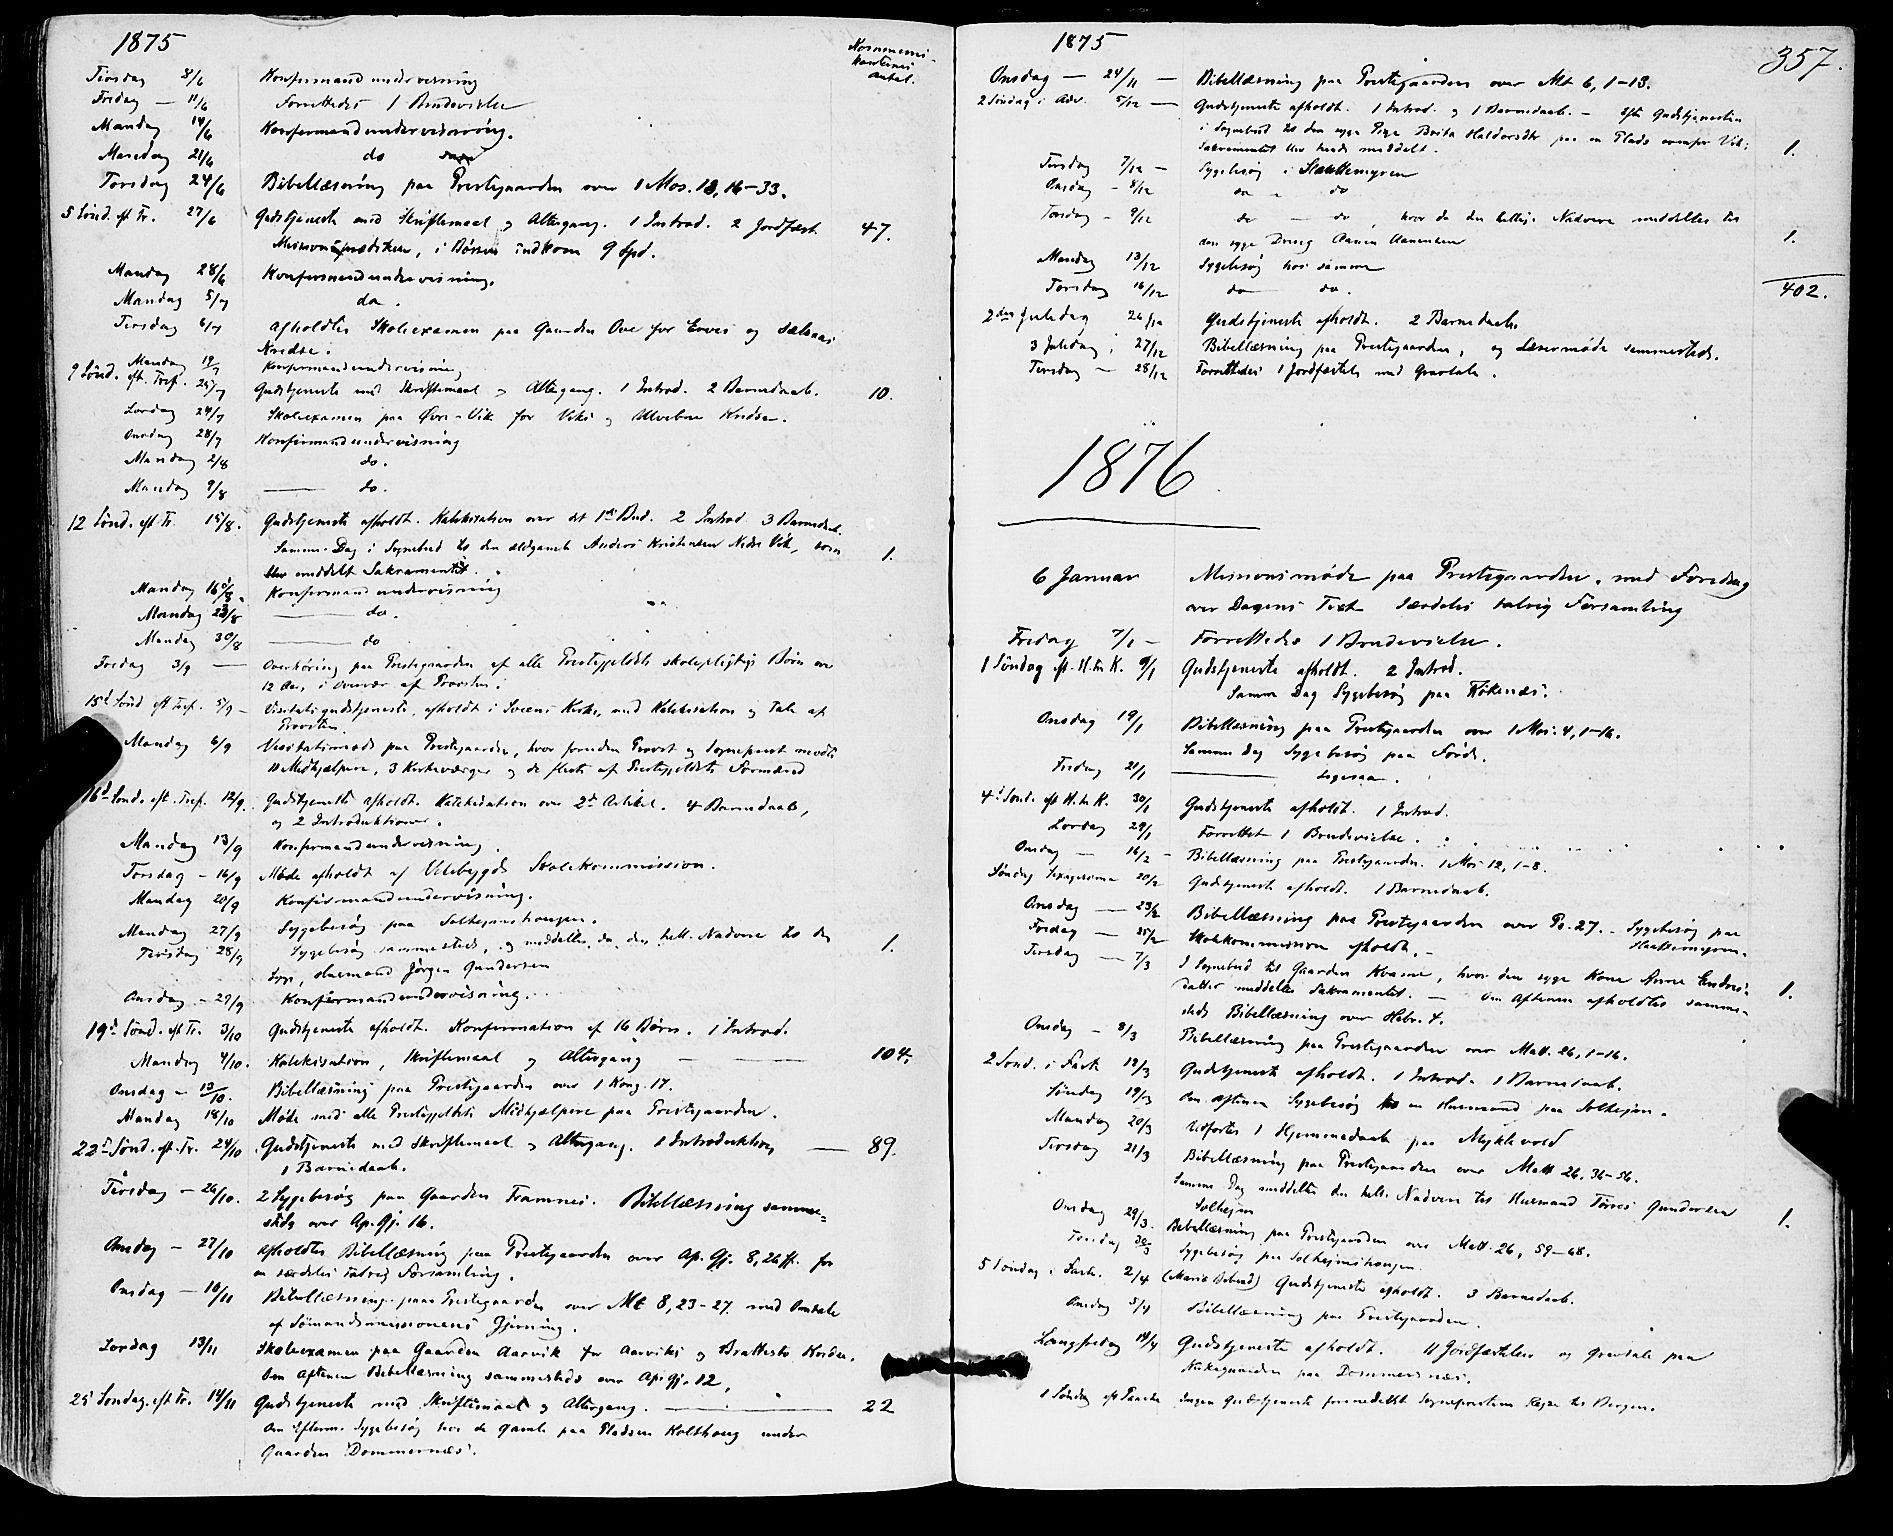 1875
Kommuni-
kanternes
antal.
Tirsdag 8/6 Konfirmandundervisning
Fredag — 11/6 Forrettedes 1 Brudevielse
Mandag 14/6 Konfirmandundervisning.
Mandag 21/6 do
Torsdag 24/6 Bibellæsning paa Prestegaarden over 1 Mos. 18, 16-33.
5 Sönd. eft Tr. 27/6 Gudstjeneste med Skriftemaal og Altergang. 1 Introd. 2 Jordfæst. 47.
Missionsprædiken, i Bössen indkom 9 Spd.
Mandag 28/6 Konfirmandundervisning.
Mandag 5/7 do.
Tirsdag 6/7 Afholdtes Skoleexamen paa Gaarden Ove for Eives og
Kredse.
Mandag 19/7 Konfirmandundervisning
9 Sönd. eft. Tref. 25/7 Gudstjeneste med Skriftemaal og Altergang. 1 Introd. 2 Barnedaab. 10.
Lördag 24/7 Skoleexamen paa Övre-Vik for Viks og Kredse.
Onsdag 28/7 Konfirmandundervisning
Mandag 2/8 do.
Mandag 9/8 — do.
12 Sönd. eft. Tr. 15/8. Gudstjeneste afholdt. Katekisation over det 1ste Bud. 2 Introd. 3 Barnedaab.
Samme Dag i Sognebud til den Anders Kristensen Nedre Vik, som 1.
blev meddelt Sakramentet.
Mandag 16/8. Konfirmandundervisning
Mandag 23/8 — do.
Mandag 30/8 — do
Fredag 3/9 — Overhöring paa Prestegaarden af alle Prestegjeldets skolepligtige Börn over
12 Aar, i Overvær af Provsten.
15d Sönd eft Tref. 5/9 - Visitatsgudstjeneste, afholdt i Sveens Kirke, med Katekisation og Tale af
Provsten.
Mandag 6/9 Visitatsmöde paa Prestegaarden, hvor foruden Provst og Sogneprest mødte
11 Medhjælpere, 3 Kirkeværger og de fleste af Prestegjeldets Formænd
16d Sönd. eft. Tref. 12/9. Gudstjeneste afholdt. Katekisation over 2d Artikel. 4 Barnedaab,
og 2 Introduktioner.
Mandag 13/9 Konfirmandundervisning.
Torsdag - 16/9 Möde afholdt af Skolekommission.
Mandag 20/9 Konfirmandundervisning.
Mandag 27/9 Sygebesög paa Solheimshougen.
Tirsdag 28/9 Sygebesög sammesteds, og meddeltes da den hell. Nadvere til den 1.
Syge, Husmand Jörgen Gundersen
Onsdag - 29/9 Konfirmandundervisning.
19d Sönd. eft Tr. 3/10 Gudstjeneste afholdt. Konfirmation af 16 Börn. 1 Introd.
Mandag 4/10. Katekisation, Skriftemaal og Altergang — 104.
Onsdag - 13/10. Bibellæsning paa Prestegaarden over 1 Kong. 17.
Mandag 18/10 Möde med alle Prestegjeldets Medhjælpere paa Prestegaarden.
22d Sönd. eft. Tr. 24/10 Gudstjeneste med Skriftemaal og Altergang. 1 Introduktion — 89.
1 Barnedaab.
Tirsdag - 26/10. 2 Sygebesög paa Gaarden Framnes. Bibellæsning samme-
steds over Ap. Gj. 16.
Onsdag - 27/10 Afholdtes Bibellæsning paa Prestegaarden over Ap. Gj. 8, 26ff. for
en særdeles talrig Forsamling.
Onsdag - 10/11 Bibellæsning paa Prestegaarden over Mt 8, 23-27 med Omtale
af Sömandsmissionens Gjerning.
Lördag 13/11 Skoleexamen paa Gaarden Aarvik for Aarviks og Kredse.
Om Aftenen Bibellæsning sammesteds over Ap. Gj. 12.
25 Söndag eft Tr. 14/11 Gudstjeneste med Skriftemaal og Altergang. — 22
Om Efterm. Sygebesög hos de gamle paa Pladsen under
Gaarden Dommersnæs.
1875
357.
Onsdag — 24/11 — Bibellæsning paa Prestegaarden over Mt 6, 1-13.
2 Söndag i Adv. 5/12 — Gudstjeneste afholdt. 1 Introd. og 1 Barnedaab. — Efter Gudstjenesten
i Sognebud til den syge Pige Brita Haldorsdtr paa en Plads ovenfor Vik; 1.
Sakramentet blev hende meddelt.
Tirsdag 7/12 - Sygebesög i Slættemyren
Onsdag - 8/12 do - do
Torsdag - 9/12 do — do hvor da den hellige Nadvere meddeltes til
den syge Dreng Aanensen 1.
Mandag 13/12 Sygebesög hos samme
Torsdag 16/12 do — do. 402.
2den Juledag 26/12 Gudstjeneste afholdt. 2 Barnedaab.
3 Juledag 27/12 Bibellæsning paa Prestegaarden, og Læsermöde sammesteds.
Tirsdag - 28/12 Forrettedes 1 Jordfæstelse med Gravtale.
1876
6 Januar Missionsmöde paa Prestegaarden, med Foredrag
over Dagens Text Særdeles talrig Forsamling
Fredag 7/1 - Forrettedes 1 Brudevielse.
1 Söndag eft. H. tr. K. 9/1 Gudstjeneste afholdt. 2 Introd.
Samme Dag Sygebesög paa Kökenæs.
Onsdag 19/1 Bibellæsning paa Prestegaarden over 1 Mos. 4, 1-16.
Samme Dag Sygebesög paa Förde.
Fredag 21/1 — ligesaa.
4d Sönd. eft H. tr. K. 30/1 Gudstjeneste afholdt. 1 Introd.
Lördag 29/1 Forrettet 1 Brudevielse.
Onsdag — 16/2 - Bibellæsning paa Prestegaarden. 1 Mos 12, 1-8.
Söndag Sexagesima 20/2 Gudstjeneste afholdt. 1 Barnedaab.
Onsdag — 23/2 Bibellæsning paa Prestegaarden over Ps. 27. - Sygebesög paa
Slættemyren.
Fredag — 25/2 Skolekommission afholdt. -
Tirsdag — 7/3 I Sognebud til Gaarden Kvame, hvor den syge Kone Anna Endres-
datter meddeltes Sakramentet. — Om Aftenen afholdtes samme- 1.
steds Bibellæsning over Hebr. 4.
Onsdag - 8/3 Bibellæsning paa Prestegaarden over Matt. 26, 1-16.
2 Sönd. i Fast 12/3 Gudstjeneste afholdt. 1 Introd. 1 Barnedaab.
Söndag 19/3 Om Aftenen Sygebesög hos en Husmand paa Solheim.
Mandag 20/3 Udförtes 1 Hjemmedaab paa Myklevold
Tirsdag 21/3 Bibellæsning paa Prestegaarden over Matt 26, 36-56.
Samme Dag meddeltes den hell. Nadvere til Husmand Törres Gundersen 1.
Solheim
Onsdag 29/3. Bibellæsning paa Prestegaarden over Matt. 26, 59-68.
Torsdag 30/3 Sygebesög paa Solheimshougen.
5 Söndag i Fast. 2/4 (Mariæ Bebud.) Gudstjeneste afholdt. 3 Barnedaab.
Onsdag 5/4 Bibellæsning paa Prestegaarden.
Langfredag 14/4 Gudstjeneste afholdt. 11 Jordfæstelser og Gravtale paa
paa Dommersnæs.
1 Söndag eft Paaske Ingen Gudstjeneste formedelst Sognepræstens Rejse til Bergen.